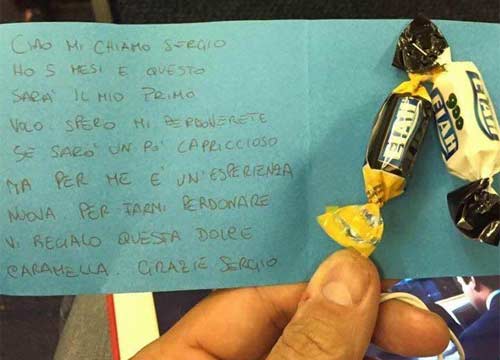 CIAO MI CHIAMO SERGIO
HO 5 MESI E QUESTO
SARA' IL MIO PRIMO
VOLO SPERO MI PERDONERETE
SE SARO' UN PO' CAPRICCIOSO
MA PER ME E' UN'ESPERIENZA
NUOVA. PER FARMI PERDONARE
VI REGALO QUESTA DOLCE
CARAMELLA. GRAZIE SERGIO